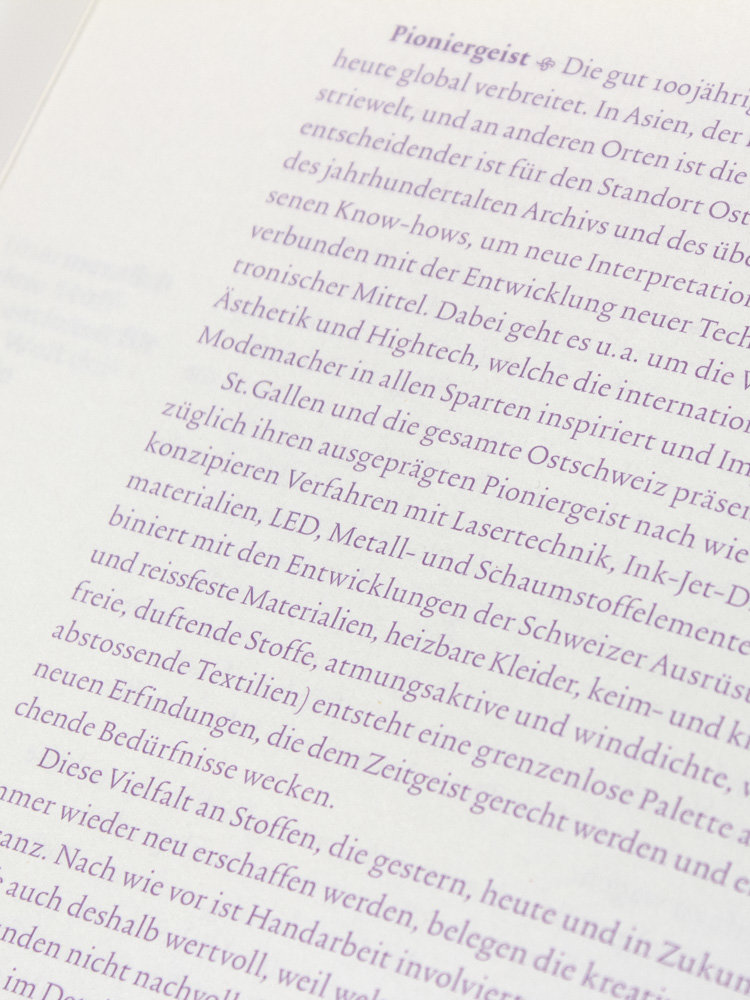 Pioniergeist Die gut 100jährig
heute global verbreitet. In Asien, der
striewelt, und an anderen Orten ist die
entscheidender ist für den Standort Ost
des jahrhundertalten Archivs und des übe
senen Know-hows, um neue Interpretation
verbunden mit der Entwicklung neuer Tech
tronischer Mittel. Dabei geht es u. a. um die V
Ästhetik und Hightech, welche die internation
Modemacher in allen Sparten inspiriert und Im
St. Gallen und die gesamte Ostschweiz präsen
züglich ihren ausgeprägten Pioniergeist nach wie
konzipieren Verfahren mit Lasertechnik, Ink-Jet-D
materialien, LED, Metall- und Schaumstoffelemente
biniert mit den Entwicklungen der Schweizer Ausrüs
und reissfeste Materialien, heizbare Kleider, keim- und k
freie, duftende Stoffe, atmungsaktive und winddichte, w
abstossende Textilien) entsteht eine grenzenlose Palette a
neuen Erfindungen, die dem Zeitgeist gerecht werden und e
chende Bedürfnisse wecken.
Diese Vielfalt an Stoffen, die gestern, heute und in Zukun
mmer wieder neu erschaffen werden, belegen die kreati
anz. Nach wie vor ist Handarbeit involviert
auch deshalb wertvoll, weil wel
nden nicht nachvoll
im De